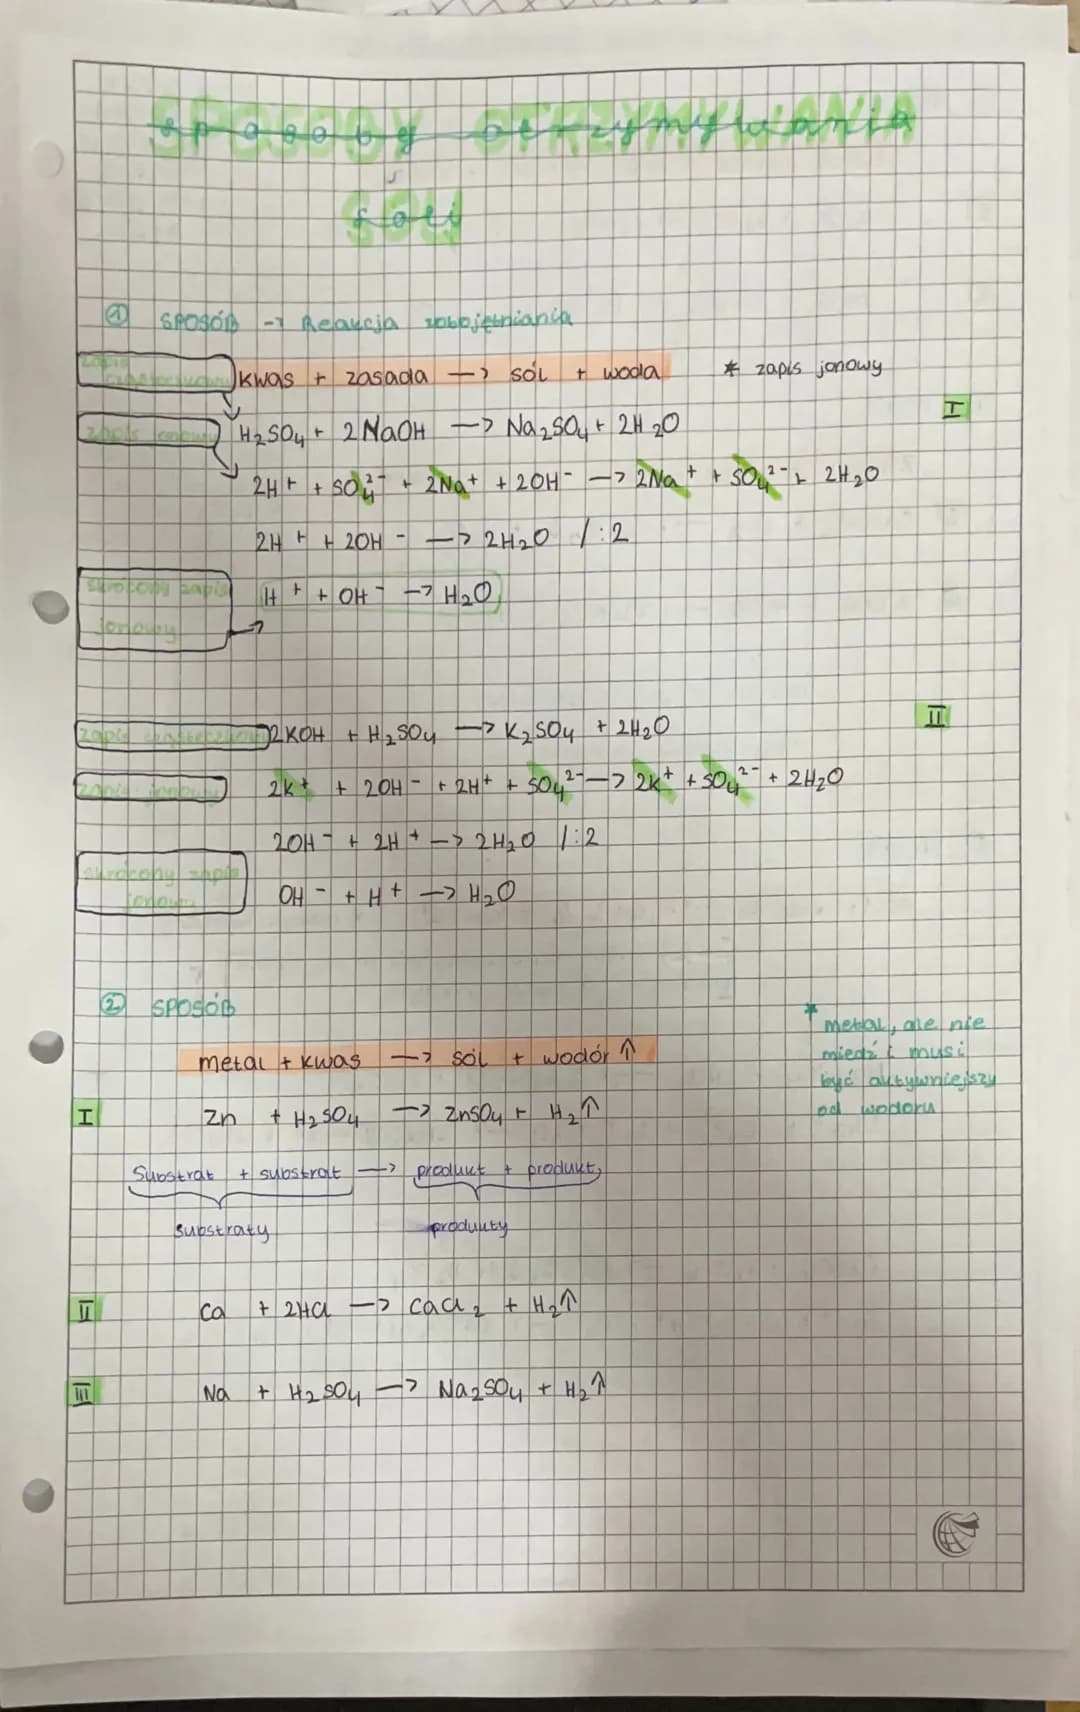 sposoby otrzymywania
soli
① SPOSÓB -> Reakcja zobojętniania
zapis cząsteczkowy kwas + zasada —> sól + woda * zapis jonowy
I
zapis jonowy H₂SO₄ + 2NaOH —> Na₂SO₄ + 2H₂O
2H⁺ + SO₄²⁻ + 2Na⁺ + 2OH⁻ —> 2Na⁺ + SO₄²⁻ + 2H₂O
2H⁺ + 2OH⁻ —> 2H₂O /:2
skrócony zapis jonowy H⁺ + OH⁻ —> H₂O
II
zapis cząsteczkowy 2KOH + H₂SO₄ —> K₂SO₄ + 2H₂O
zapis jonowy 2K⁺ + 2OH⁻ + 2H⁺ + SO₄²⁻ —> 2K⁺ + SO₄²⁻ + 2H₂O
2OH⁻ + 2H⁺ —> 2H₂O /:2
skrócony zapis jonowy OH⁻ + H⁺ —> H₂O
② SPOSÓB
metal + kwas —> sól + wodór ↑
* metal, ale nie
miedź i musi
być aktywniejszy
od wodoru
I Zn + H₂SO₄ —> ZnSO₄ + H₂↑
Substrat + substrat —> produkt + produkt
substraty produkty
II Ca + 2HCl —> CaCl₂ + H₂↑
III Na + H₂SO₄ —> Na₂SO₄ + H₂↑